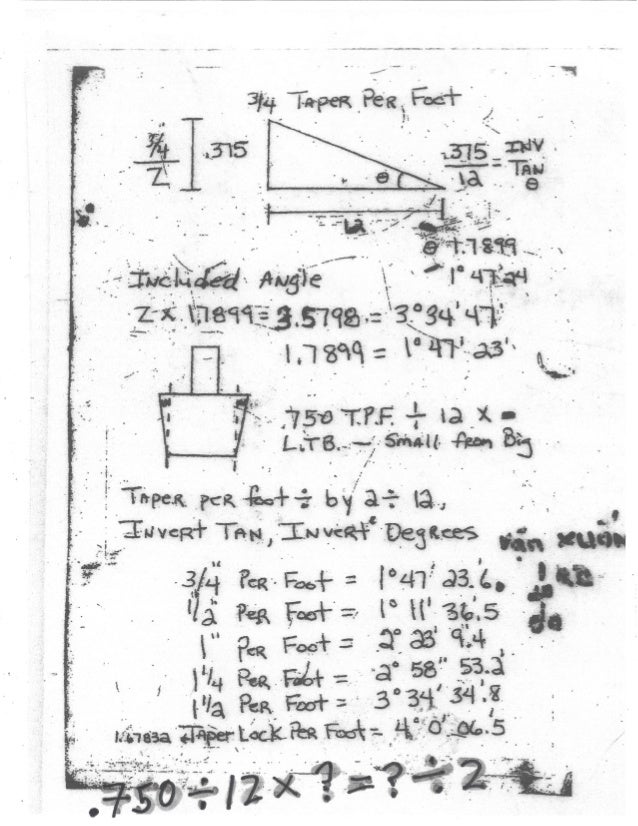 3/4 TAPER PER FOOT
3/4 / 2 .375
θ
.375 / 12 = INV TAN θ
12
θ 1.7899
1° 47' 24
INCLUDED ANGLE
2 X 1.7899 = 3.5798 = 3° 34' 47'
1.7899 = 1° 47' 23'
.750 T.P.F. ÷ 12 X =
L.T.B. — SMALL FROM BIG
TAPER PER FOOT ÷ by 2 ÷ 12,
INVERT TAN, INVERT DEGREES
3/4" PER FOOT = 1° 47' 23.6
1/2" PER FOOT = 1° 11' 36.5
1" PER FOOT = 2° 23' 9.4
1 1/4 PER FOOT = 2° 58" 53.2
1 1/2 PER FOOT = 3° 34' 34.8
1.67832 TAPER LOCK PER FOOT = 4° 0' 06.5
.750 ÷ 12 X ? = ? ÷ 2